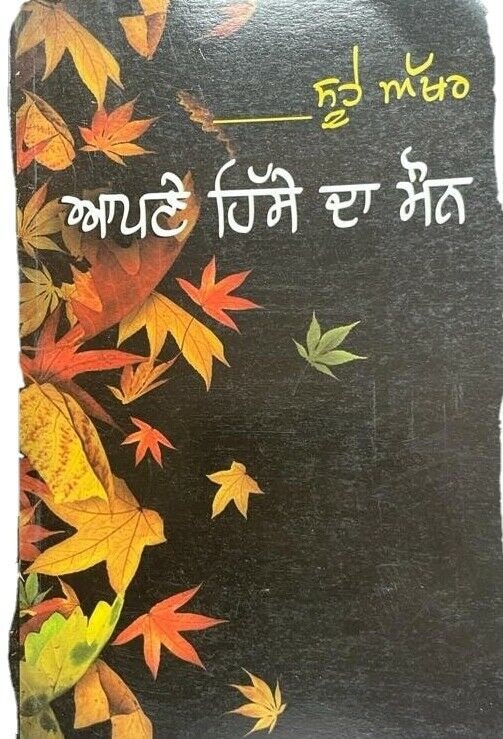 ਸੂਹੇ ਅੱਖਰ
ਆਪਣੇ ਹਿੱਸੇ ਦਾ ਮੌਨ